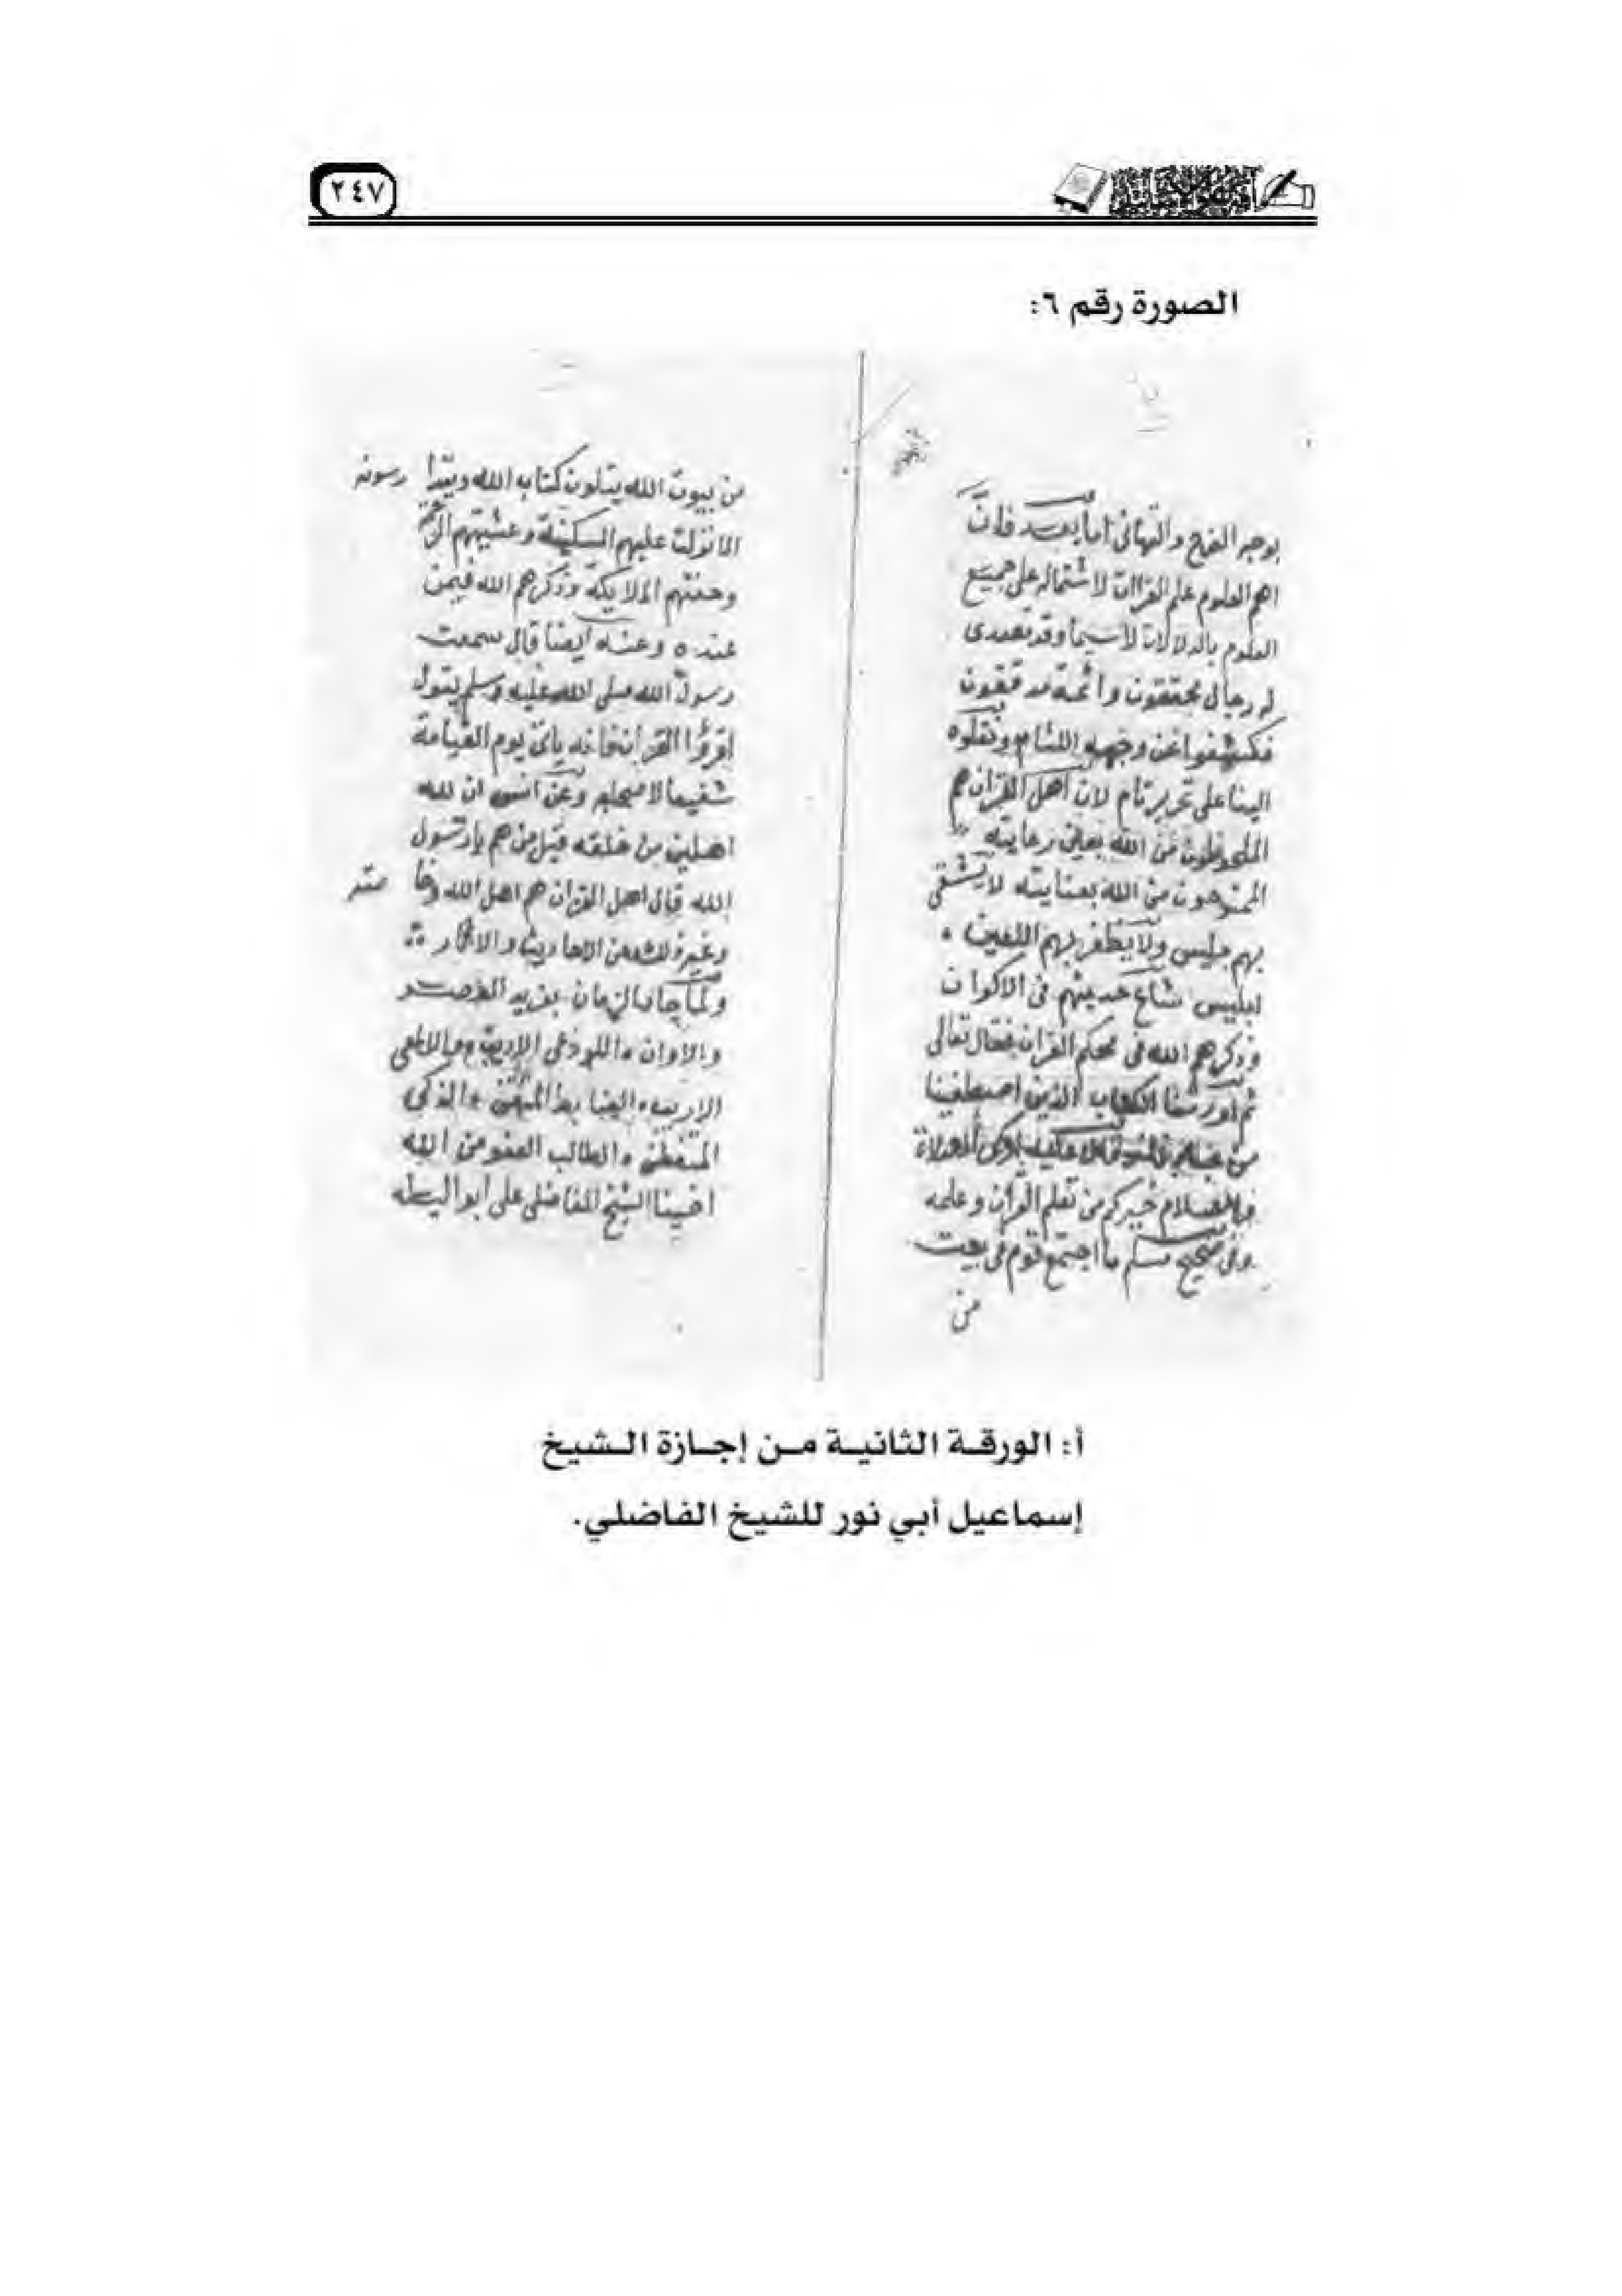 ٢٤٧
الصورة رقم ٦:
بوجه الفرح والتهاني اما بعد فان
اهم العلوم علم القران لاشتماله على جميع
العلوم بالدلالات لا سيما وقد تصدى
له رجال محققون وائمة مدققون
فكشفوا عن وجهه اللثام ونقلوه
الينا على تحرير تام لان اهل القران هم
الملحوظون من الله بعين رعايته
الممنوحون من الله بعنايته لا يشقى
بهم جليس ولا يظفر بهم اللعين
ابليس شاع حديثهم في الاكوان
وذكرهم الله في محكم القران فقال تعالى
ثم اورثنا الكتاب الذين اصطفينا
من عبادنا وقال عليه ازكى الصلاة
والسلام خيركم من تعلم القرآن وعلمه
وفي صحيح مسلم ما اجتمع قوم في بيت
من
من بيوت الله يتلون كتاب الله
الا نزلت عليهم السكينة وغشيتهم الرحمة
وحفتهم الملايكة وذكرهم الله فيمن
عنده وعنه ايضا قال سمعت
رسول الله صلى الله عليه وسلم يقول
اقرؤا القران فانه ياتي يوم القيامة
شفيعا لاصحابه وعن انس ان لله
اهلين من خلقه قيل من هم يا رسول
الله قال اهل القران هم اهل الله
وغير ذلك من الاحاديث والاثار
ولما جاد الزمان بفريد العصر
والاوان اللوذعي الاديب والالمعي
الاريب الضابط المتقن والذكي
المتفطن والطالب العفو من الله
اخينا الشيخ الفاضلي علي ابو ليطه
أ: الورقة الثانية من إجازة الشيخ
إسماعيل أبي نور للشيخ الفاضلي.